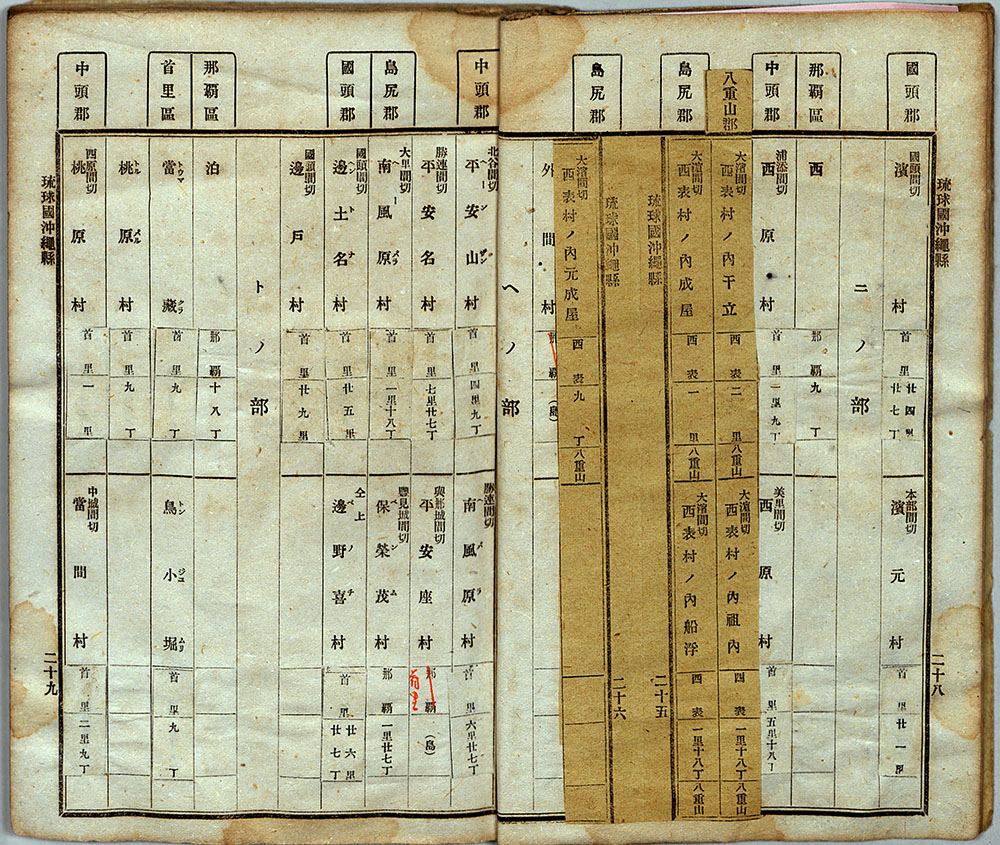 國頭郡
國頭間切
濱村
首里
廿四里
廿七丁
本部間切
濱元村
首里
廿一里
琉球國沖繩縣
二十八
ニノ部
那覇區
西
那覇
九丁
中頭郡
浦添間切
西原村
首里
一里九丁
美里間切
西原村
首里
五里十八丁
八重山郡
大濱間切
西表村ノ內干立
西表
二里
八重山
大濱間切
西表村ノ內祖內
西表
一里十八丁
八重山
島尻郡
大濱間切
西表村ノ內成屋
西表
一里
八重山
大濱間切
西表村ノ內船浮
西表
一里十八丁
八重山
琉球國沖繩縣
二十五
琉球國沖繩縣
二十六
島尻郡
大濱間切
西表村ノ內元成屋
西表
九丁
八重山
外間村
那覇
(島)
ヘノ部
中頭郡
北谷間切
平安山村
ヘンザン
首里
四里九丁
勝連間切
南風原村
首里
六里廿七丁
勝連間切
平安名村
首里
七里廿七丁
與那城間切
平安座村
那覇
首里
(島)
島尻郡
大里間切
南風原村
首里
一里十八丁
豐見城間切
保榮茂村
那覇
一里廿七丁
國頭郡
國頭間切
邊土名村
ヘントナ
首里
廿五里
仝上
邊野喜村
首里
廿六里
廿七丁
國頭間切
邊戶村
首里
廿九里
トノ部
那覇區
泊
那覇
十八丁
首里區
當藏
トウマクラ
首里
九丁
鳥小堀
首里
九丁
桃原村
首里
九丁
中頭郡
西原間切
桃原村
首里
一里
中城間切
當間村
首里
二里九丁
琉球國沖繩縣
二十九